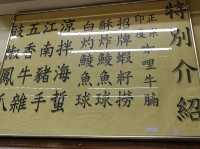 特別介紹
正宗印度咖哩牛腩
招牌蝦籽撈
酥炸鯪魚球
白灼鯪魚球
涼拌海蜇
江南豬手
五香牛雜
豉鳳爪